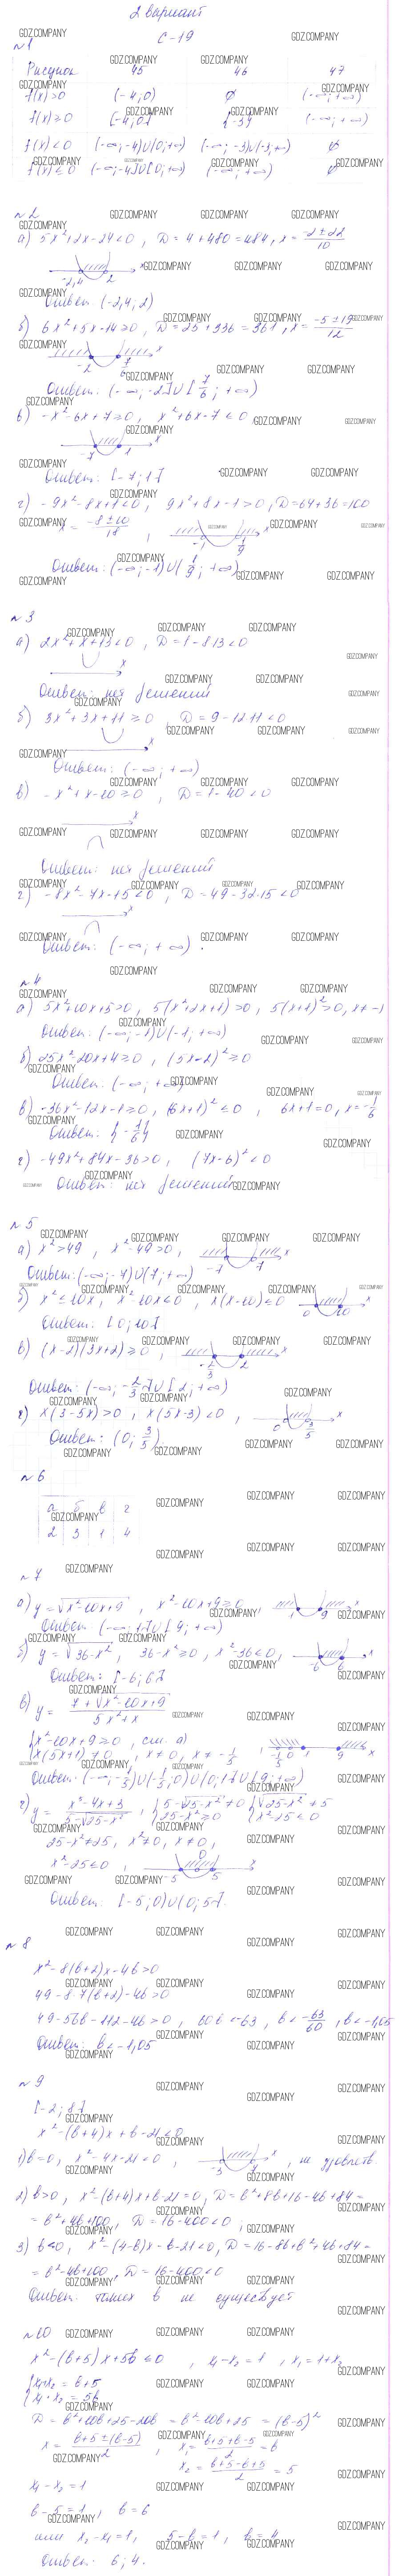 2 вариант
С-19
№1
Рисунок 45 46 47
f(x)>0 (-4;0) ∅ (-∞;+∞)
f(x)≥0 [-4;0] {-3} (-∞;+∞)
f(x)<0 (-∞;-4)∪(0;+∞) (-∞;-3)∪(-3;+∞) ∅
f(x)≤0 (-∞;-4]∪[0;+∞) (-∞;+∞) ∅
№2
а) 5x²+2x-24<0, D=4+480=484, x=(-2±22)/10
-2,4 2 x
Ответ: (-2,4; 2)
б) 6x²+5x-14≥0, D=25+336=361, x=(-5±19)/12
-2 7/6 x
Ответ: (-∞;-2]∪[7/6;+∞)
в) -x²-6x+7≥0, x²+6x-7≤0
-7 1 x
Ответ: [-7;1]
г) -9x²-8x+1<0, 9x²+8x-1>0, D=64+36=100
x=(-8±10)/18, -1 1/9 x
Ответ: (-∞;-1)∪(1/9;+∞)
№3
а) 2x²+x+13<0, D=1-8·13<0
x
Ответ: нет решений
б) 3x²+3x+11≥0, D=9-12·11<0
x
Ответ: (-∞;+∞)
в) -x²+x-10≥0, D=1-40<0
x
Ответ: нет решений
г) -8x²-7x-15<0, D=49-32·15<0
x
Ответ: (-∞;+∞).
№4
а) 5x²+10x+5>0, 5(x²+2x+1)>0, 5(x+1)²>0, x≠-1
Ответ: (-∞;-1)∪(-1;+∞)
б) 25x²-20x+4≥0, (5x-2)²≥0
Ответ: (-∞;+∞)
в) -36x²-12x-1≥0, (6x+1)²≤0, 6x+1=0, x=-1/6
Ответ: {-1/6}
г) -49x²+84x-36>0, (7x-6)²<0
Ответ: нет решений
№5
а) x²>49, x²-49>0, -7 7 x
Ответ: (-∞;-7)∪(7;+∞)
б) x²≤10x, x²-10x≤0, x(x-10)≤0 0 10 x
Ответ: [0;10]
в) (x-2)(3x+2)≥0, -2/3 2 x
Ответ: (-∞;-2/3]∪[2;+∞)
г) x(3-5x)>0, x(5x-3)<0, 0 3/5 x
Ответ: (0; 3/5)
№6
а б в г
2 3 1 4
№7
а) y=√(x²-10x+9), x²-10x+9≥0, 1 9 x
Ответ: (-∞;1]∪[9;+∞)
б) y=√(36-x²), 36-x²≥0, x²-36≤0, -6 6 x
Ответ: [-6;6]
в) y=(7+√(x²-10x+9))/(5x²+x)
{x²-10x+9≥0, см. а)
{x(5x+1)≠0, x≠0, x≠-1/5 -1/5 0 1 9 x
Ответ: (-∞;-1/5)∪(-1/5;0)∪(0;1]∪[9;+∞)
г) y=(x³-4x+3)/(5-√(25-x²)), {5-√(25-x²)≠0 {√(25-x²)≠5
{25-x²≥0 {x²-25≤0
25-x²≠25, x²≠0, x≠0,
x²-25≤0, -5 0 5 x
Ответ: [-5;0)∪(0;5].
№8
x²-8(b+2)x-4b>0
49-8·7(b+2)-4b>0
49-56b-112-4b>0, 60b<-63, b<-63/60, b<-1,05
Ответ: b<-1,05
№9
[-2;8]
x²-(b+4)x+b-21<0
1) b=0, x²-4x-21<0, -3 7 x, не удовлетв.
2) b>0, x²-(b+4)x+b-21=0, D=b²+8b+16-4b+84=
=b²+4b+100, D=16-400<0
3) b<0, x²-(4-b)x-b-21<0, D=16-8b+b²+4b+84=
=b²-4b+100, D=16-400<0
Ответ: таких b не существует
№10
x²-(b+5)x+5b≤0, x₁-x₂=1, x₁=1+x₂
{x₁+x₂=b+5
{x₁·x₂=5b
D=b²+10b+25-20b=b²-10b+25=(b-5)²
x=(b+5±(b-5))/2, x₁=(b+5+b-5)/2=b
x₂=(b+5-b+5)/2=5
x₁-x₂=1
b-5=1, b=6
или x₂-x₁=1, 5-b=1, b=4
Ответ: 6; 4.
GDZ.COMPANY